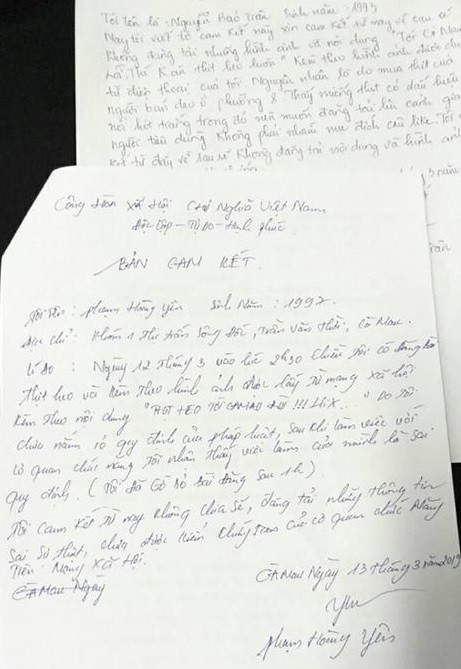 Tôi tên là: Nguyễn Bảo Trân Sinh năm: 1993
Nay tôi viết tờ cam kết này xin cam kết từ nay về sau sẽ
không đăng tải những hình ảnh và nội dung "Tới Cà Mau
rồi. Thì K ăn thịt heo luôn" kèm theo hình ảnh
từ điện thoại của tôi. Nguyên nhân là do mua thịt của
người bán dạo ở phường 8. Thấy miếng thịt có dấu hiệu
nổi hột trắng trong đó nên muốn đăng tải lên cảnh giác
người tiêu dùng không phải nhằm mục đích câu like. Tôi
kết từ đây về sau sẽ không đăng tải nội dung và hình ảnh
Cộng Hòa Xã Hội Chủ Nghĩa Việt Nam
Độc Lập - Tự Do - Hạnh Phúc
BẢN CAM KẾT
Tôi tên: Phạm Hồng Yến Sinh Năm: 1997.
Địa chỉ: Khóm 1 Thị trấn Sông Đốc, Trần Văn Thời, Cà Mau.
Lí do: Ngày 12 tháng 3 vào lúc 2h30 chiều tôi có đăng bài
thịt heo và kèm theo hình ảnh được lấy từ mạng xã hội
kèm theo nội dung " HEO TỚI CÀ MAU RỒI !!! HIX.. " Do tôi
chưa nắm rõ quy định của pháp luật, sau khi làm việc với
cơ quan chức năng tôi nhận thấy việc làm của mình là sai
quy định. (Tôi Đã Gỡ bỏ bài đăng sau 1h)
Tôi cam kết từ nay không chia sẻ, đăng tải những thông tin
sai sự thật, chưa được kiểm chứng trên của cơ quan chức năng
trên Mạng Xã Hội.
Cà Mau Ngày
Cà Mau Ngày 13 tháng 3 năm 2019
Yến
Phạm Hồng Yến